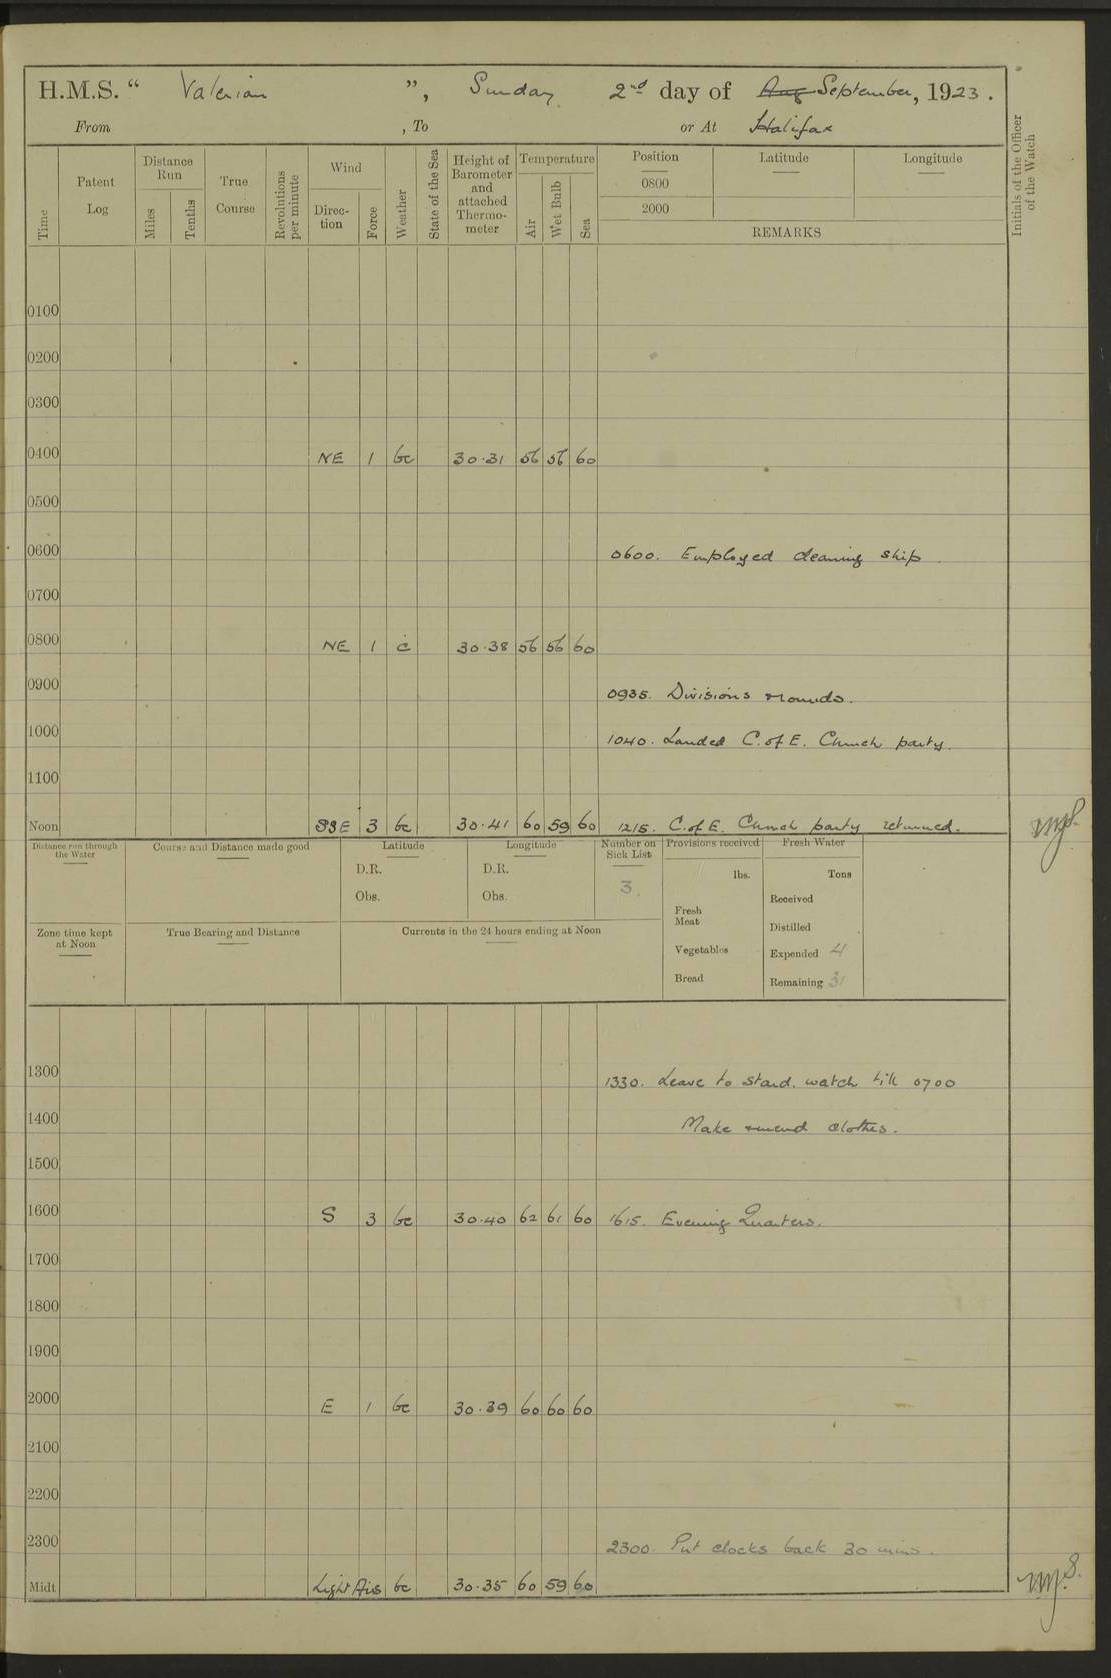 H.M.S. “ Valerian ”, Sunday 2nd day of Aug September, 1923.
From , To or At Halifax
Time Patent Log Distance Run Miles Tenths True Course Revolutions per minute Wind Direc-tion Force Weather State of the Sea Height of Barometer and attached Thermo-meter Temperature Air Wet Bulb Sea Position 0800 2000 Latitude Longitude REMARKS Initials of the Officer of the Watch
0100
0200
0300
0400 NE 1 bc 30·31 56 56 60
0500
0600 0600. Employed cleaning ship.
0700
0800 NE 1 c 30·38 56 56 60
0900 0935. Divisions rounds.
1000 1040. Landed C. of E. Church party.
1100
Noon SSE 3 bc 30·41 60 59 60 1215. C. of E. Church party returned.
Distance run through the Water Course and Distance made good Latitude Longitude Number on Sick List Provisions received Fresh Water
D.R. D.R. 3. lbs. Tons
Obs. Obs. Received
Fresh Meat Distilled
Zone time kept at Noon True Bearing and Distance Currents in the 24 hours ending at Noon
Vegetables Expended 4
Bread Remaining 31
1300 1330. Leave to Starbd. watch till 0700
1400 Make & mend clothes.
1500
1600 S 3 bc 30·40 62 61 60 1615. Evening Quarters.
1700
1800
1900
2000 E 1 bc 30·39 60 60 60
2100
2200
2300 2300. Put clocks back 30 mins.
Midt Light Airs bc 30·35 60 59 60